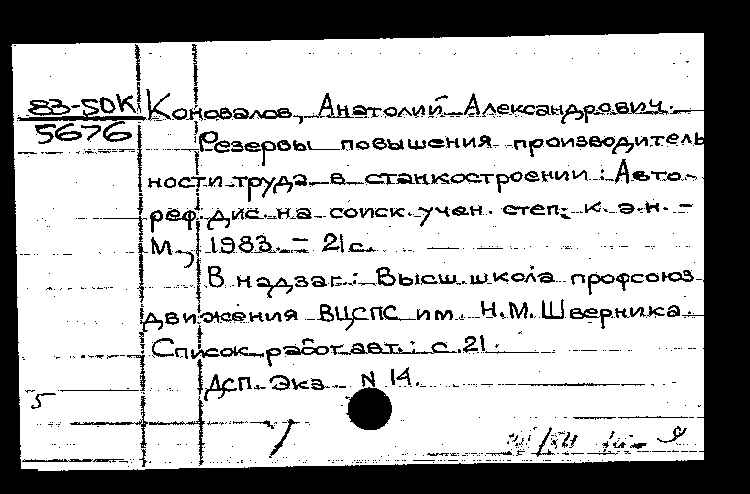 83-50К Коновалов, Анатолий Александрович.
5676 Резервы повышения производитель
ности труда в станкостроении: Авто-
реф. дис. на соиск. учен. степ. к. э. н. -
М., 1983. - 21 с.
В надзаг.: Высш. школа профсоюз.
движения ВЦСПС им. Н.М. Шверника.
Список работ авт.: с. 21.
ДСП. Экз N 14.
5